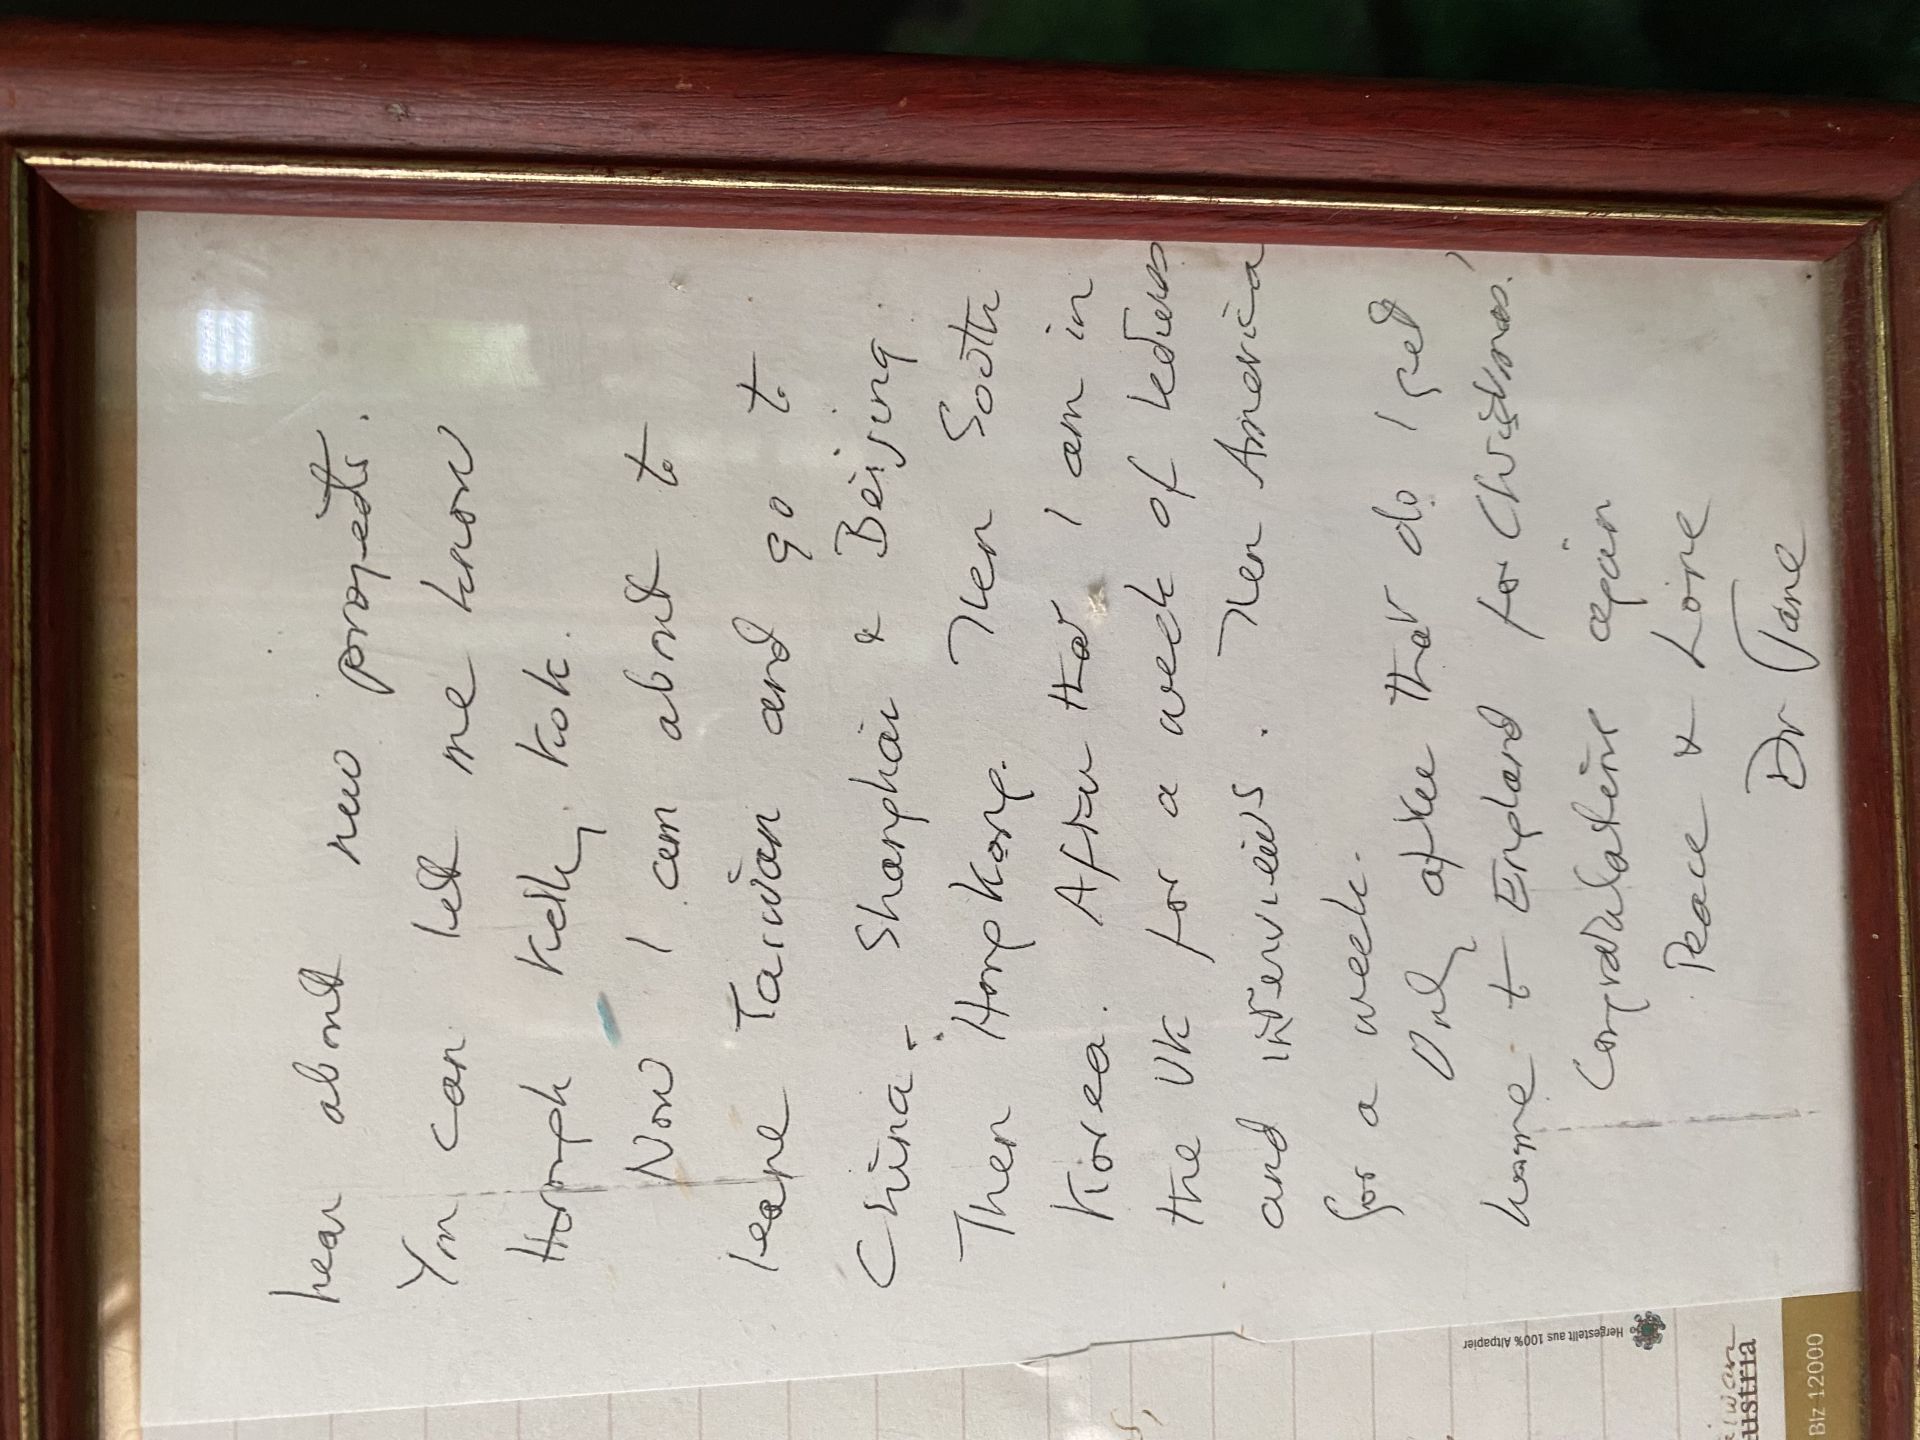 hear about new projects.
You can let me know
through Kelly Kok.
Now I am about to
leave Taiwan and go to
China - Shanghai & Beijing.
Then Hong Kong. Then South
Korea. After that I am in
the UK for a week of lectures
and interviews. Then America
for a week.
Only after that do I get
home to England for Christmas!
Congratulations again
Peace & Love
Dr Jane
Hergestellt aus 100% Altpapier
iwan
ustria
Blz 12000